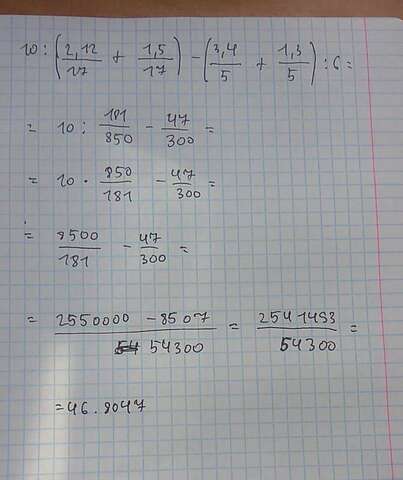 10 : (2,12/17 + 1,5/17) - (3,4/5 + 1,3/5) : 6 =
= 10 : 181/850 - 47/300 =
= 10 · 850/181 - 47/300 =
= 8500/181 - 47/300 =
= 2550000 - 8507/54300 = 2541493/54300 =
= 46.8047